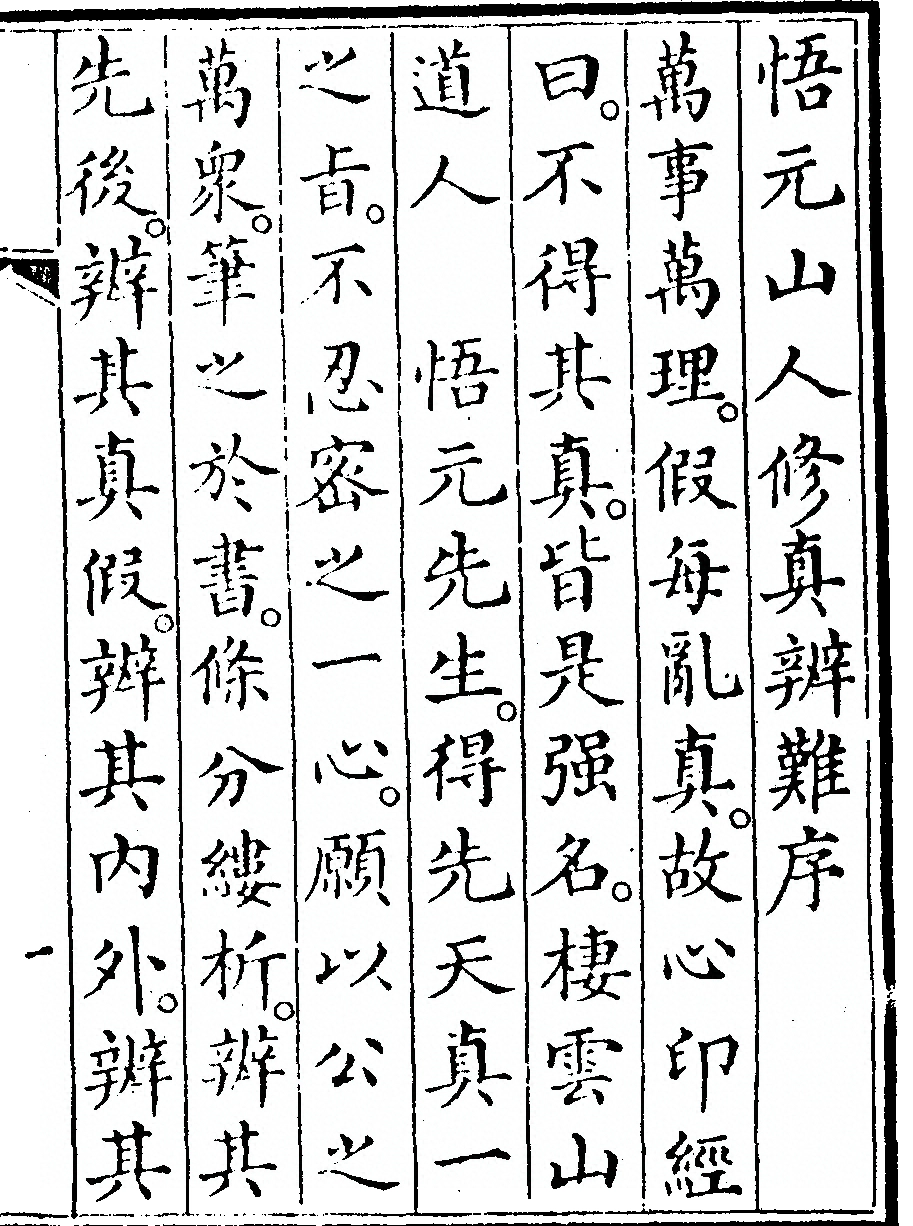 悟元山人修真辨難序
萬事萬理。假每亂真。故心印經
曰。不得其真。皆是强名。棲雲山
道人　悟元先生。得先天真一
之㫖。不忍密之一心。願以公之
萬衆。筆之於書。條分縷析。辨其
先後。辨其真假。辨其内外。辨其
一